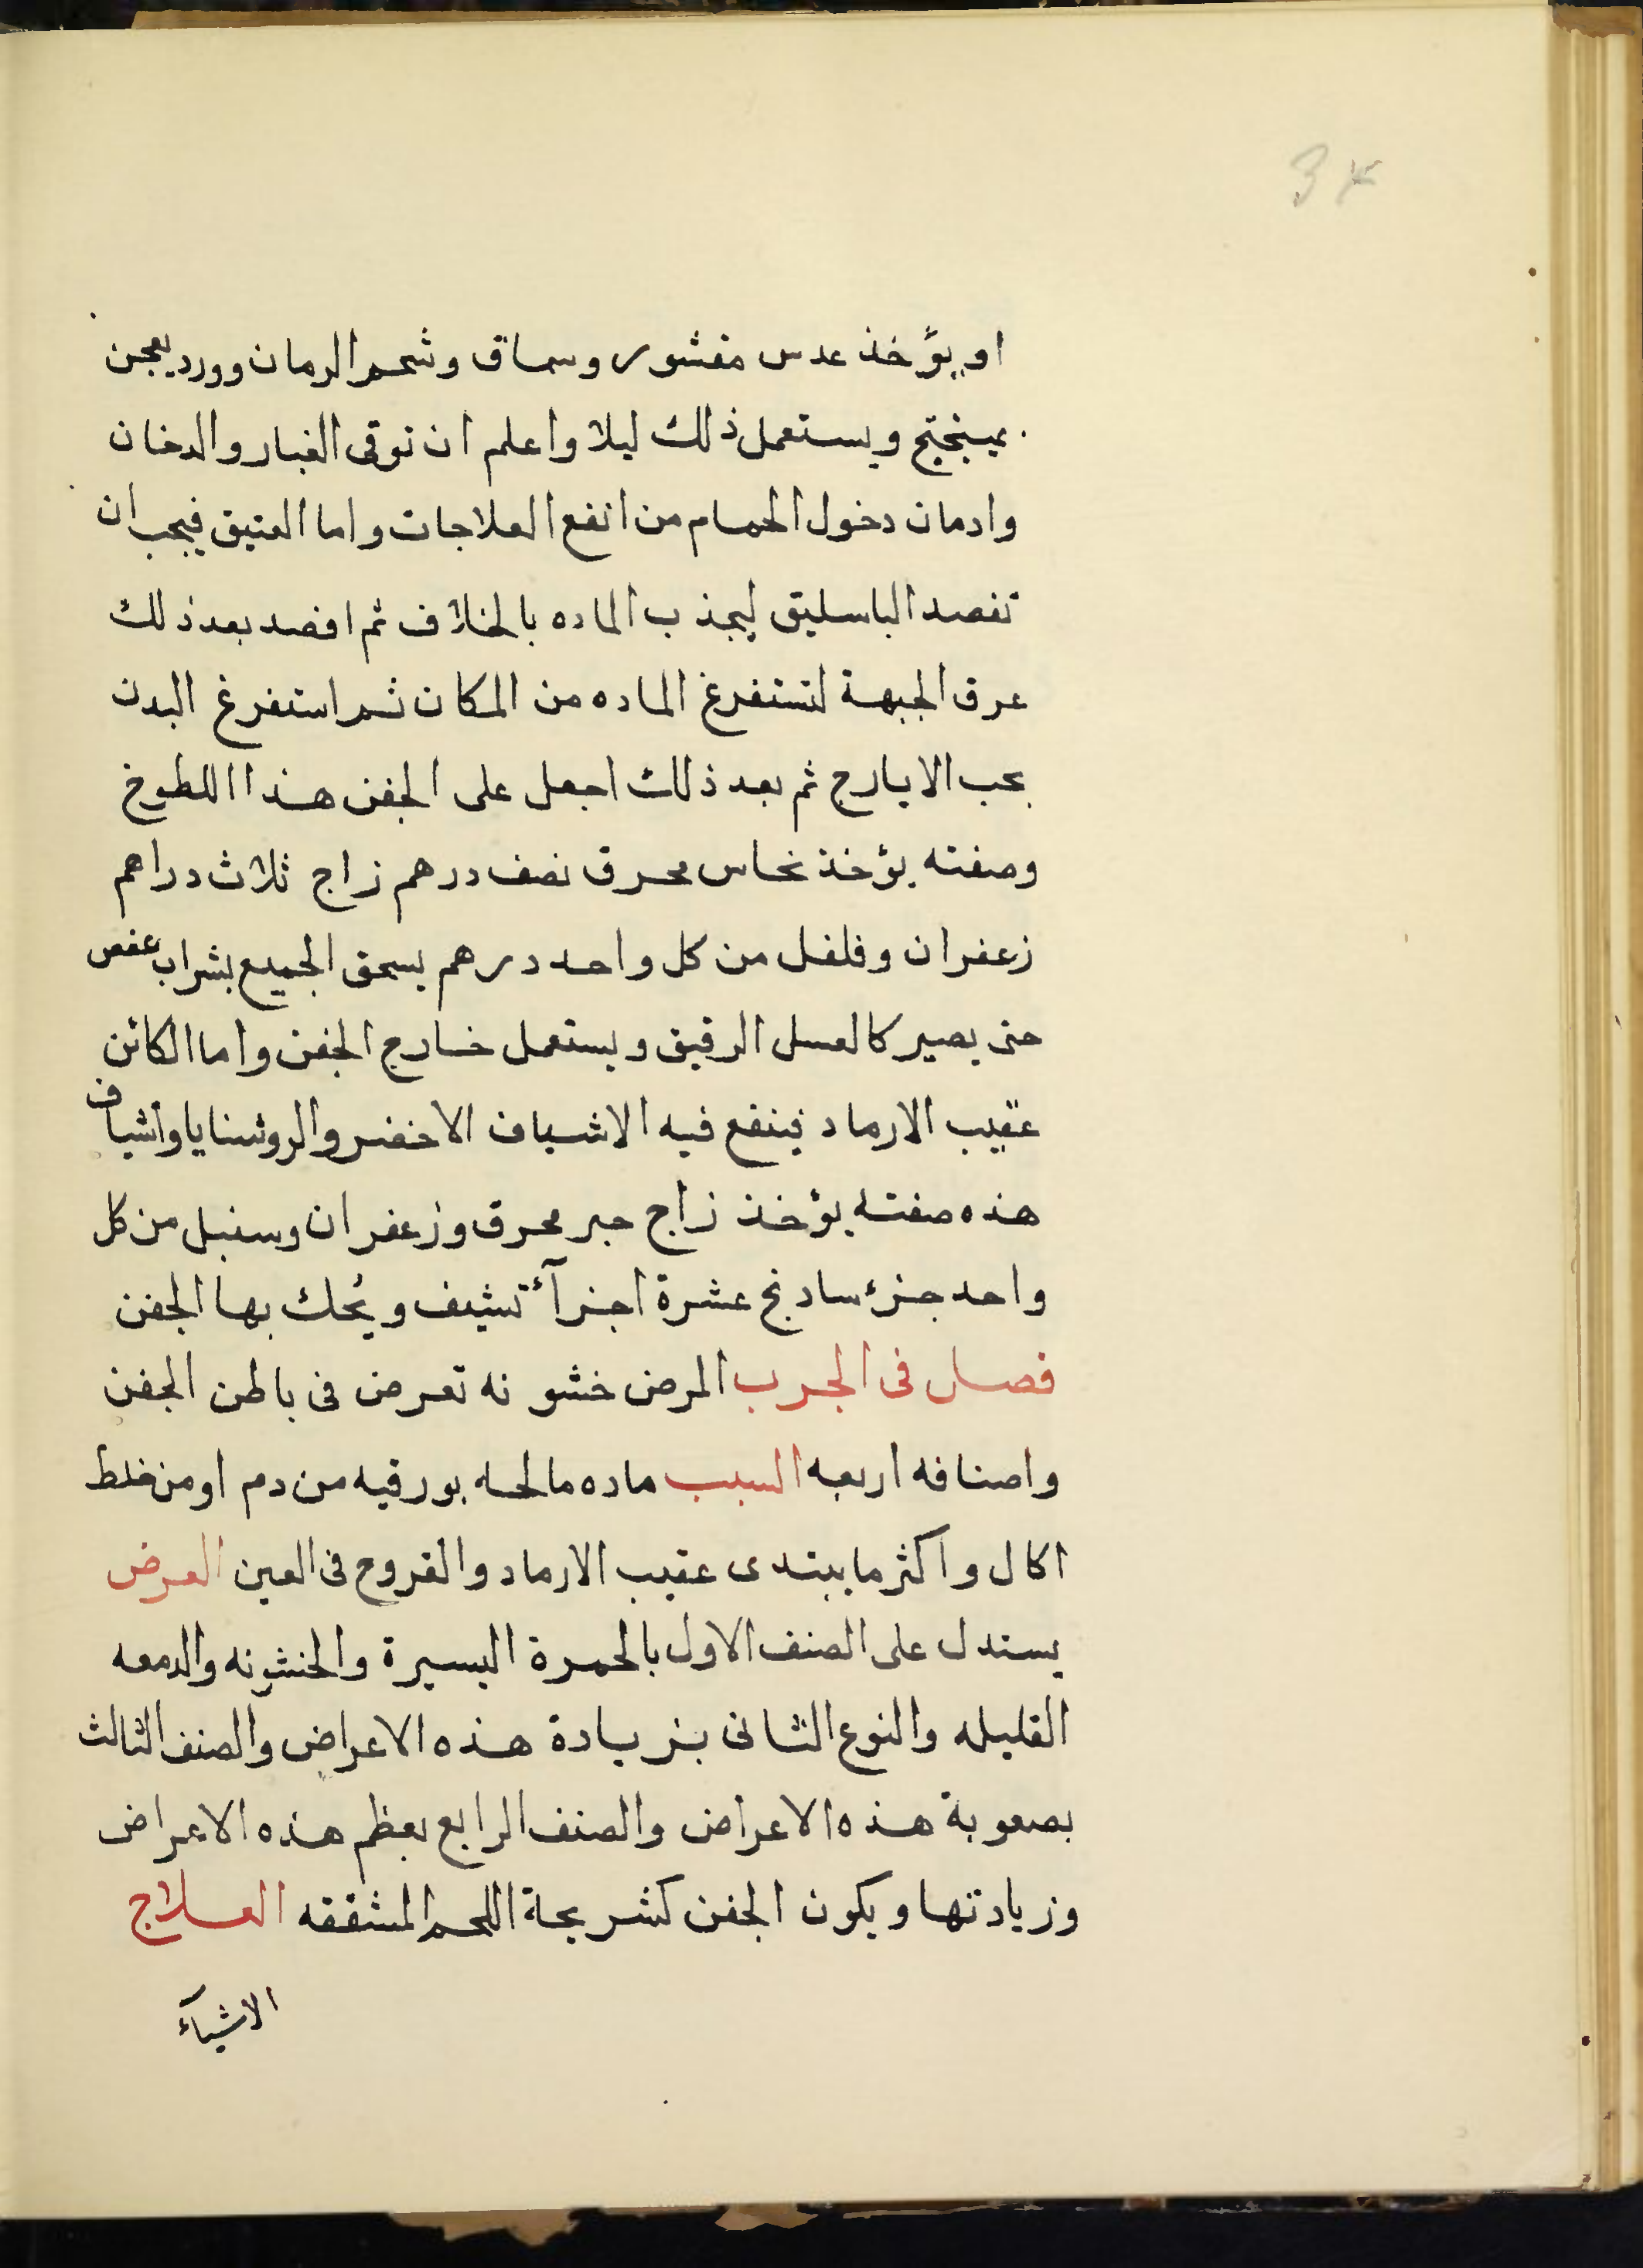 او يؤخذ عدس مقشور وسماق وشحم الرمان وورد يعجن
بميبختج ويستعمل ذلك ليلا واعلم ان توقى الغبار والدخان
وادمان دخول الحمام من انفع العلاجات واما العتيق فيجب ان
تفصد الباسليق ليجذب الماده بالخلاف ثم افصد بعد ذلك
عرق الجبهة لتستفرغ الماده من المكان ثم استفرغ البدن
بحب الايارج ثم بعد ذلك اجعل على الجفن هذا اللطوخ
وصفته يؤخذ نحاس محرق نصف درهم زاج ثلاث دراهم
زعفران وفلفل من كل واحد درهم يسحق الجميع بشراب عفص
حتى يصير كالعسل الرقيق ويستعمل خارج الجفن واما الكائن
عقيب الارماد فينفع فيه الاشياف الاخضر والروشنايا واشياف
هذه صفته يؤخذ زاج حبر محرق وزعفران وسنبل من كل
واحد جزء سادنج عشرة اجزآء تشيف ويحك بها الجفن
فصل فى الجرب المرض خشونه تعرض فى باطن الجفن
واصنافه اربعه السبب ماده مالحه بورقيه من دم او من خلط
اكال واكثر ما يبتدى عقيب الارماد والقروح فى العين العرض
يستدل على الصنف الاول بالحمرة اليسيرة والخشونه والدمعه
القليله والنوع الثانى بزيادة هذه الاعراض والصنف الثالث
بصعوبة هذه الاعراض والصنف الرابع بعظم هذه الاعراض
وزيادتها ويكون الجفن كشريحة اللحم المشققه العلاج
الاشيآء